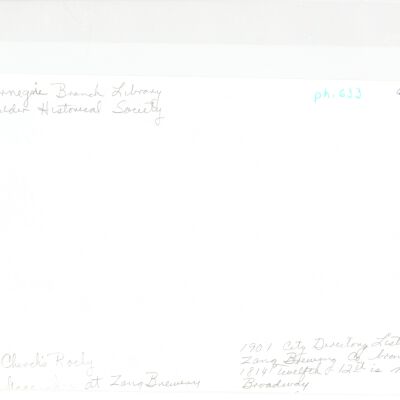 rnegie Branch Library
ulder Historical Society
ph. 513
Church's Rocky
at Zang Brewery
1901 City Directory List
Zang Brewing Co. bran
1814 Twelfth, 12th is n
Broadway